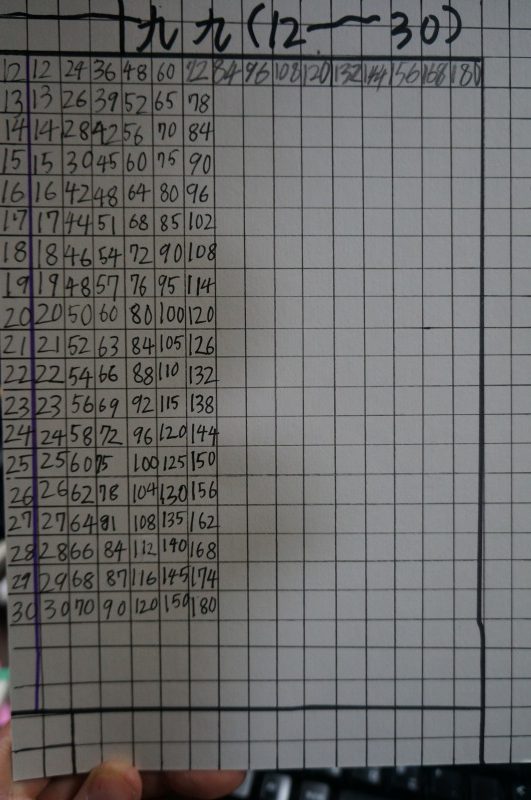 九九(12〜30)
12 12 24 36 48 60 72 84 96 108 120 132 144 156 168 180
13 13 26 39 52 65 78
14 14 28 42 56 70 84
15 15 30 45 60 75 90
16 16 42 48 64 80 96
17 17 44 51 68 85 102
18 18 46 54 72 90 108
19 19 48 57 76 95 114
20 20 50 60 80 100 120
21 21 52 63 84 105 126
22 22 54 66 88 110 132
23 23 56 69 92 115 138
24 24 58 72 96 120 144
25 25 60 75 100 125 150
26 26 62 78 104 130 156
27 27 64 81 108 135 162
28 28 66 84 112 140 168
29 29 68 87 116 145 174
30 30 70 90 120 150 180